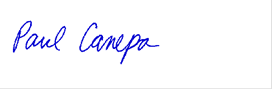 Paul Canepa